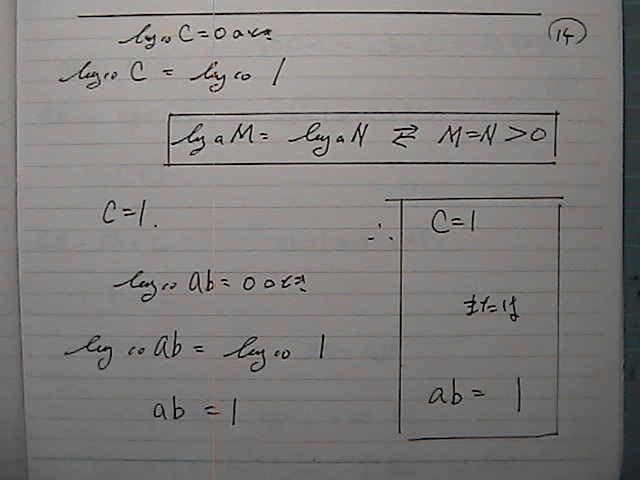 14
log₁₀ C = 0 のとき
log₁₀ C = log₁₀ 1
logₐ M = logₐ N ⇄ M = N > 0
C = 1.
log₁₀ ab = 0 のとき
log₁₀ ab = log₁₀ 1
ab = 1
∴ C = 1
または
ab = 1